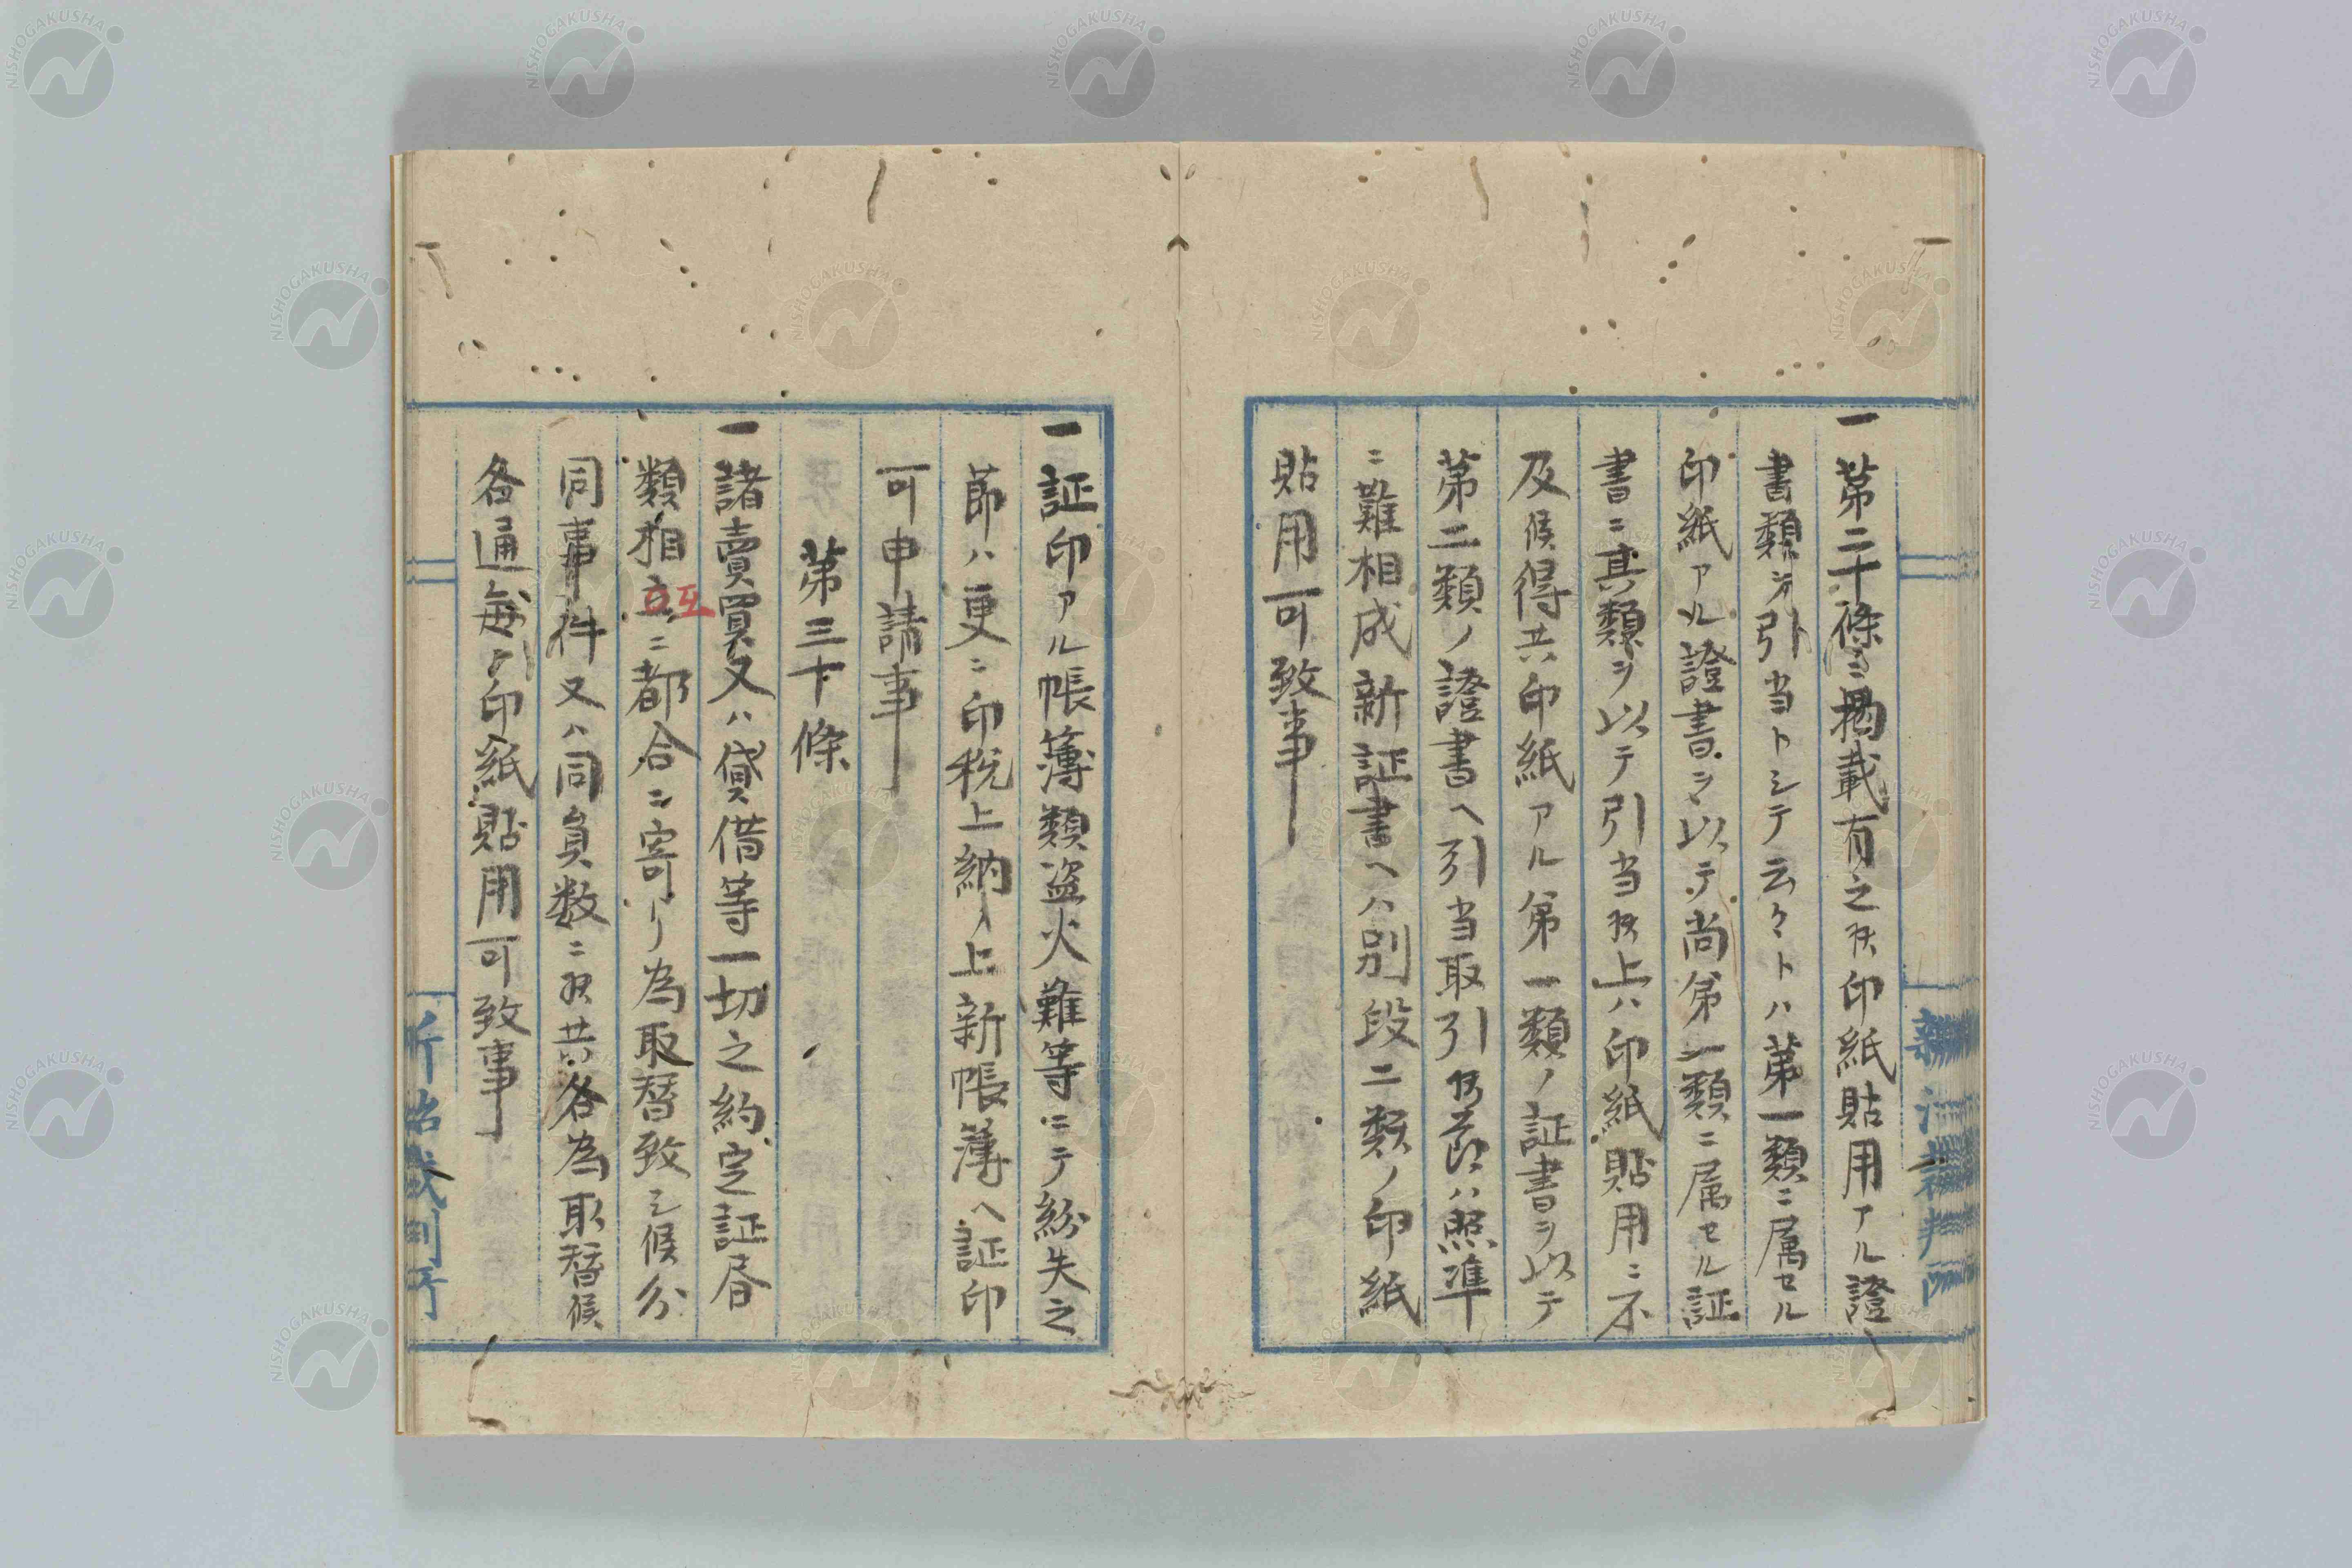 一第二十條ニ掲載有之候印紙貼用アル證
書類ヲ引当トシテ云々トハ第一類ニ属セル
印紙アル證書ヲ以テ尚第一類ニ属セル証
書ニ其類ヲ以テ引当候上ハ印紙貼用ニ不
及候得共印紙アル第一類ノ証書ヲ以テ
第二類ノ證書ヘ引当取引候節ハ照準
ニ難相成新証書ヘハ別段二類ノ印紙
貼用可致事
一証印アル帳簿類盗火難等ニテ紛失之
節ハ更ニ印税上納ノ上新帳薄ヘ証印
可申請事
第三十條
一諸賣買又ハ貸借等一切之約定証書
類相互ニ都合ニ寄リ為取替致シ候分
同事件又ハ同員数ニ候共各為取替候
各通毎ニ印紙貼用可致事
新治裁判所
NISHOGAKUSHA